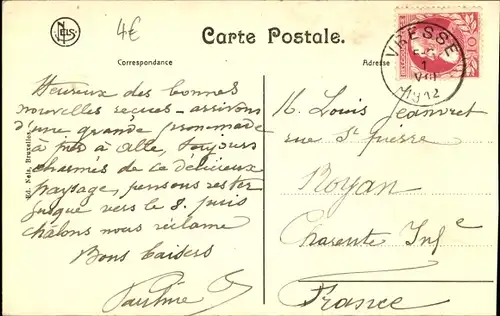 NELS
4€
Carte Postale.
Correspondance
Adresse
VRESSE
1
VIII
1912
10
Heureux des bonnes
nouvelles reçues - arrivons
d'une grande promenade
à pied à Alle, toujours
charmés de ce délicieux
paysage, pensons rester
jusque vers le 8. puis
châlons nous réclame
Bons baisers
Pauline
M. Louis Jeanvret
rue St pierre
Royan
Charente Infe
France
Ed. Nels, Bruxelles